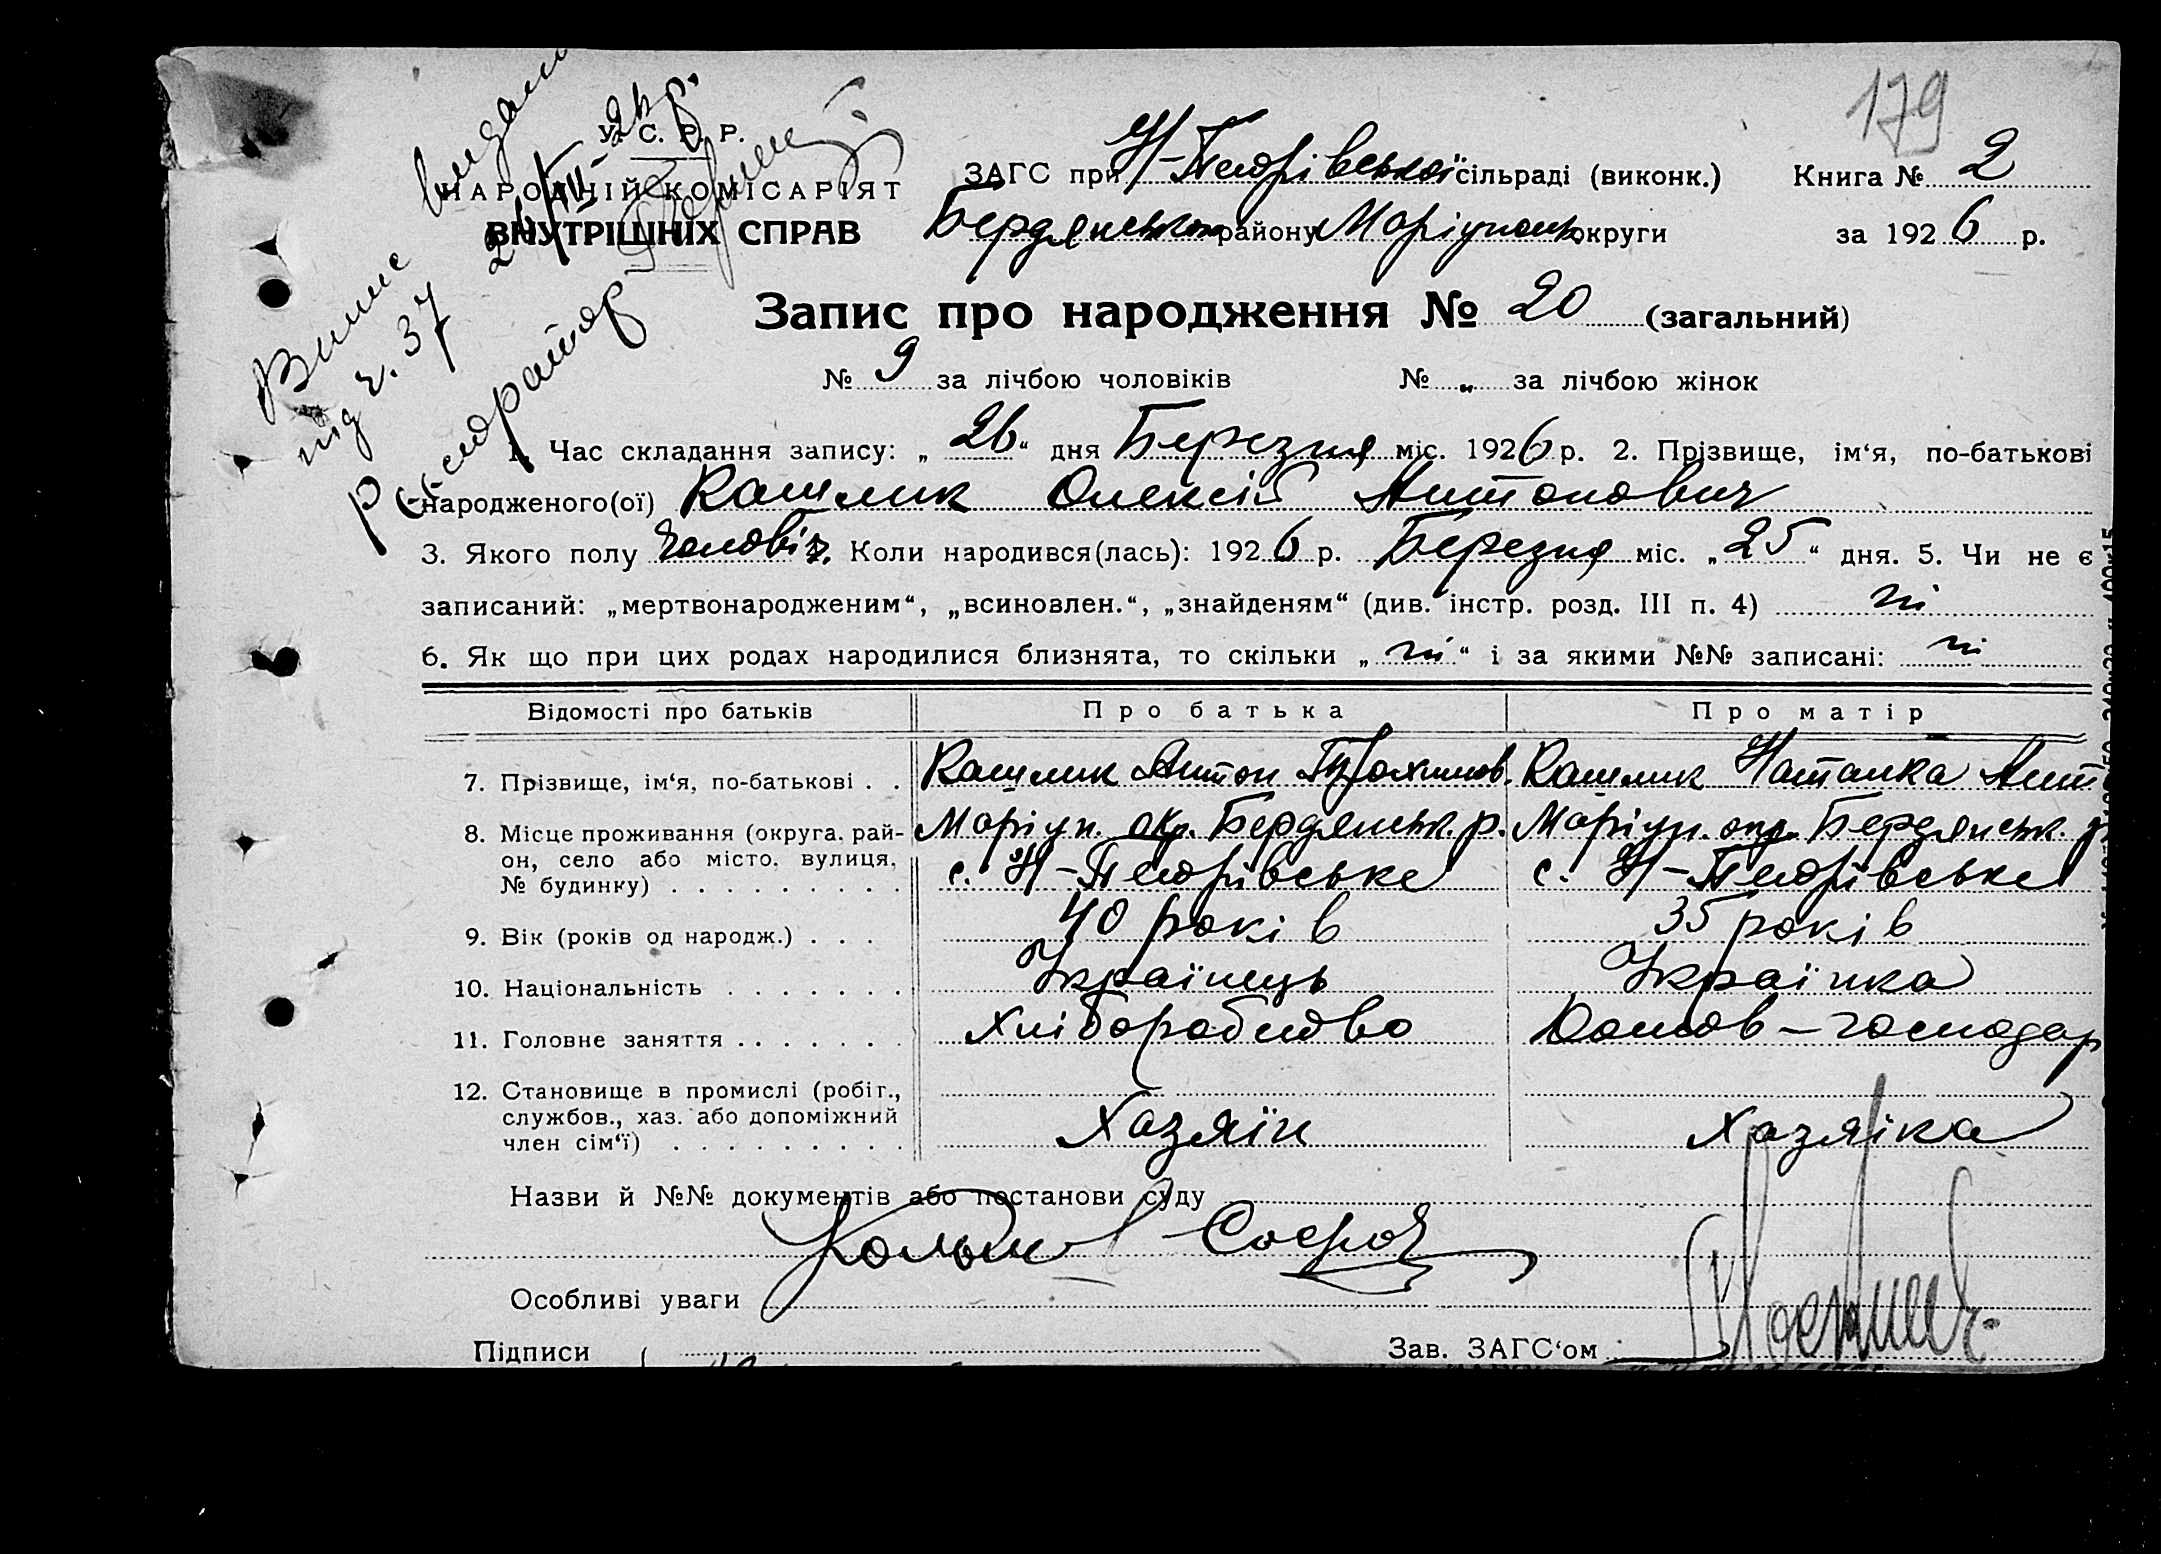 179
Випис видан
під ч. 37 24/III-26 р.
Реєстратор
У. С. Р. Р.
НАРОДНІЙ КОМІСАРІЯТ
ВНУТРІШНІХ СПРАВ
ЗАГС при Н-Петрівської сільраді (виконк.) Книга № 2
Бердянського району Маріупольск округи за 1926 р.
Запис про народження № 20 (загальний)
№ 9 за лічбою чоловіків № „ за лічбою жінок
1. Час складання запису: „26“ дня Березня міс. 1926 р. 2. Прізвище, ім‘я, по-батькові
народженого(ої) Кашлик Олексій Антонович
3. Якого полу чоловіч. Коли народився(лась): 1926 р. Березня міс. „25“ дня. 5. Чи не є
записаний: „мертвонародженим“, „всиновлен.“, „знайденям“ (див. інстр. розд. III п. 4) ні
6. Як що при цих родах народилися близнята, то скільки „ні“ і за якими №№ записані: ні
Відомості про батьків Про батька Про матір
7. Прізвище, ім‘я, по-батькові . . Кашлик Антон Кашлик Наталка Ант
8. Місце проживання (округа, рай- Маріуп. окр. Бердянськ. р. Маріуп. окр. Бердянськ. р
он, село або місто, вулиця, с. Н-Петрівське с. Н-Петрівське
№ будинку) . . . . . . . . .
9. Вік (років од народж.) . . . 40 років 35 років
10. Національність . . . . . . . Українець Українка
11. Головне заняття . . . . . . . Хліборобство Домов-господар
12. Становище в промислі (робіт.,
службов., хаз. або допоміжний Хазяїн Хазяіка
член сім‘ї) . . . . . . . . .
Назви й №№ документів або постанови суду
Особливі уваги
Підписи Зав. ЗАГС‘ом